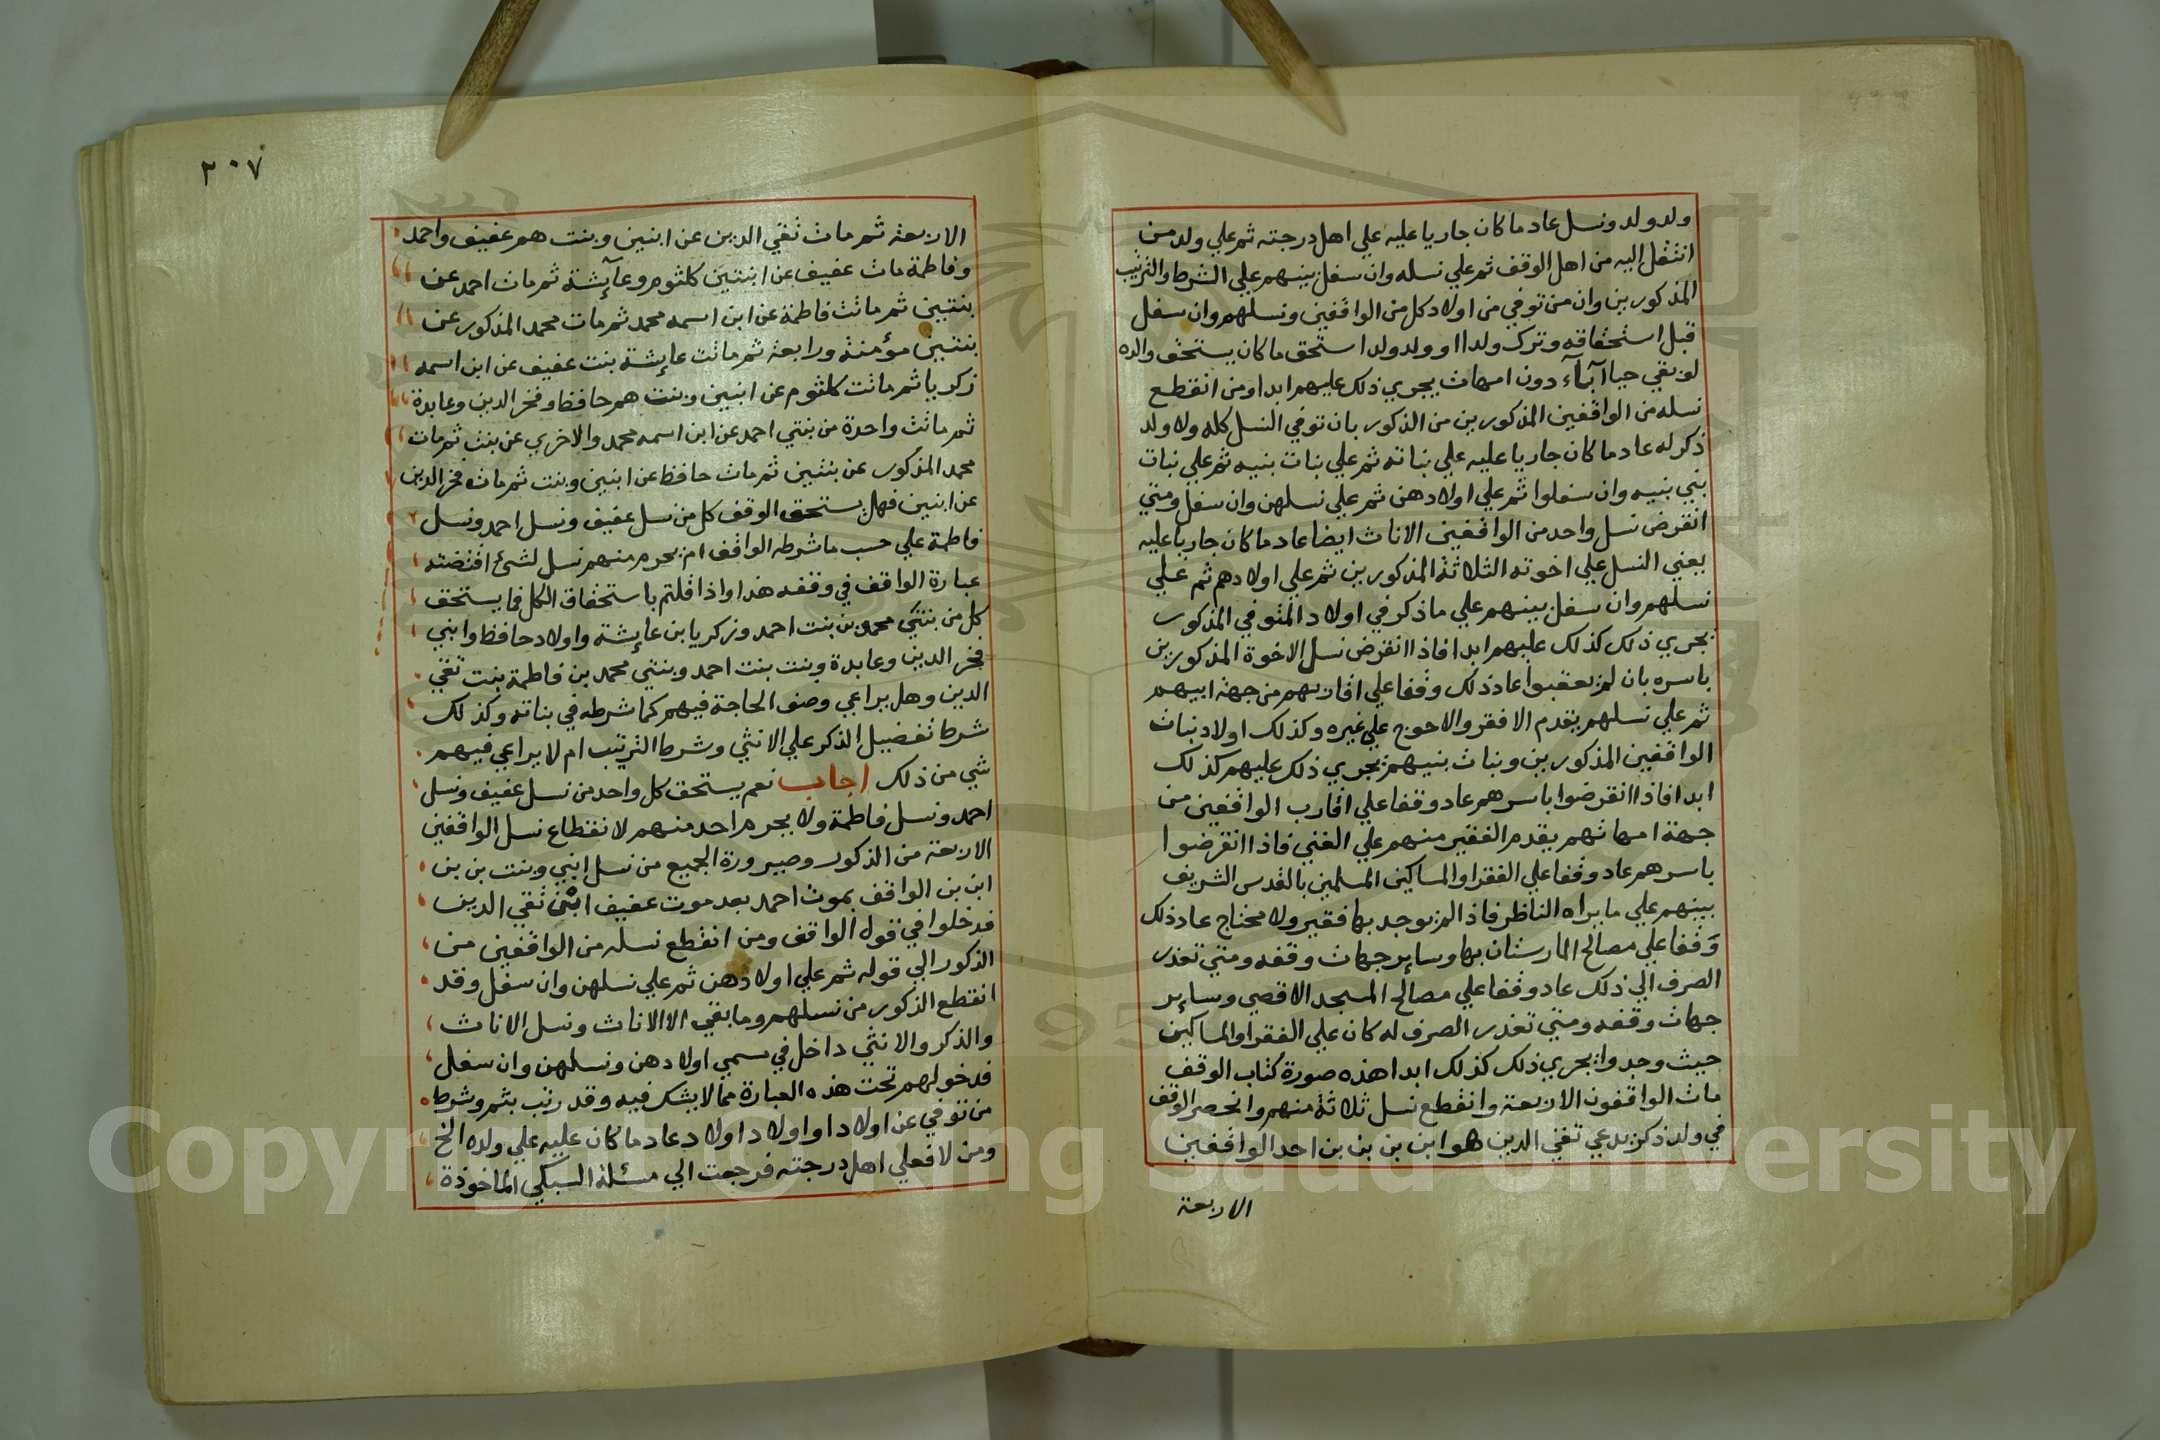 ولد ولد ونسل عاد ما كان جاريا عليه علي اهل درجته ثم علي ولد من
انتقل اليه من اهل الوقف ثم علي نسله وان سفل بينهم علي الشرط والترتيب
المذكورين وان من توفي من اولاد كل من الواقفين ونسلهم وان سفل
قبل استحقاقه وترك ولدا او ولد ولد استحق ما كان يستحق والده
لو بقي حيا اباء دون امهات يجري ذلك عليهم ابدا ومن انقطع
نسله من الواقفين المذكورين من الذكور بان توفي النسل كله ولا ولد
ذكر له عاد ما كان جاريا عليه علي بناته ثم علي بنات بنيه ثم علي بنات
بني بنيه وان سفلوا ثم علي اولادهن ثم علي نسلهن وان سفل ومتي
انقرض نسل واحد من الواقفين الاناث ايضا عاد ما كان جاريا عليه
يعني النسل علي اخوته الثلاثة المذكورين ثم علي اولادهم ثم علي
نسلهم وان سفل بينهم علي ما ذكر في اولاد المتوفي المذكور
يجري ذلك كذلك عليهم ابدا فاذا انقرض نسل الاخوة المذكورين
باسره بان لم يعقبوا عاد ذلك وقفا علي اقاربهم من جهة ابيهم
ثم علي نسلهم يقدم الافقر والاحوج علي غيره وكذلك اولاد بنات
الواقفين المذكورين وبنات بنيهم يجري ذلك عليهم كذلك
ابدا فاذا انقرضوا باسرهم عاد وقفا علي اقارب الواقفين من
جهة امهاتهم يقدم الفقير منهم علي الغني فاذا انقرضوا
باسرهم عاد وقفا علي الفقرا والمساكين المسلمين بالقدس الشريف
بينهم علي ما يراه الناظر فاذا لم يوجد بها فقير ولا محتاج عاد ذلك
وقفا علي مصالح المارستان بها وسائر جهات وقفه ومتي تعذر
الصرف الي ذلك عاد وقفا علي مصالح المسجد الاقصي وسائر
جهات وقفه ومتي تعذر الصرف له كان علي الفقرا والمساكين
حيث وجدوا يجري ذلك كذلك ابدا هذه صورة كتاب الوقف
مات الواقفون الاربعة وانقطع نسل ثلاثة منهم وانحصر الوقف
في ولد ذكر يدعي تقي الدين هو ابن بن بن بن احد الواقفين
الاربعة
٢٠٧
الاربعة ثم مات تقي الدين عن ابنين وبنت هم عفيف واحمد
وفاطمة مات عفيف عن ابنتين كلثوم وعآئشة ثم مات احمد عن
بنتين ثم ماتت فاطمة عن ابن اسمه محمد ثم مات محمد المذكور عن
بنتين مؤمنة ورابعة ثم ماتت عايشة بنت عفيف عن ابن اسمه
زكريا ثم ماتت كلثوم عن ابنين وبنت هم حافظ وفخر الدين وعابدة
ثم ماتت واحدة من بنتي احمد عن ابن اسمه محمد والاخري عن بنت ثم مات
محمد المذكور عن بنتين ثم مات حافظ عن ابنين وبنت ثم مات فخر الدين
عن ابنين فهل يستحق الوقف كل من نسل عفيف ونسل احمد ونسل
فاطمة علي حسب ما شرطه الواقف ام يحرم منهم نسل لشئ اقتضته
عبارة الواقف في وقفه هذا واذا قلتم باستحقاق الكل فما يستحق
كل من بنتي محمد بن بنت احمد وزكريا بن عايشة واولاد حافظ وابني
فخر الدين وعابدة وبنت بنت احمد وبنتي محمد بن فاطمة بنت تقي
الدين وهل يراعي وصف الحاجة فيهم كما شرطه في بناته وكذلك
شرط تفضيل الذكر علي الانثي وشرط الترتيب ام لا يراعي فيهم
شي من ذلك اجاب نعم يستحق كل واحد من نسل عفيف ونسل
احمد ونسل فاطمة ولا يحرم احد منهم لانقطاع نسل الواقفين
الاربعة من الذكور وصيرورة الجميع من نسل ابني وبنت بن بن
ابن بن الواقف بموت احمد بعد موت عفيف ابني تقي الدين
فدخلوا في قول الواقف ومن انقطع نسله من الواقفين من
الذكور الي قوله ثم علي اولادهن ثم علي نسلهن وان سفل وقد
انقطع الذكور من نسلهم وما بقي الا الاناث ونسل الاناث
والذكر والانثي داخل في مسمي اولادهن ونسلهن وان سفل
فدخولهم تحت هذه العبارة مما لا يشك فيه وقد رتب بثم وشرط
من توفي عن اولاد او اولاد اولاد عاد ما كان عليه علي ولده الخ
ومن لا فعلي اهل درجته فرجعت الي مسئلة السبكي الماخوذة
Copyright © King Saud University